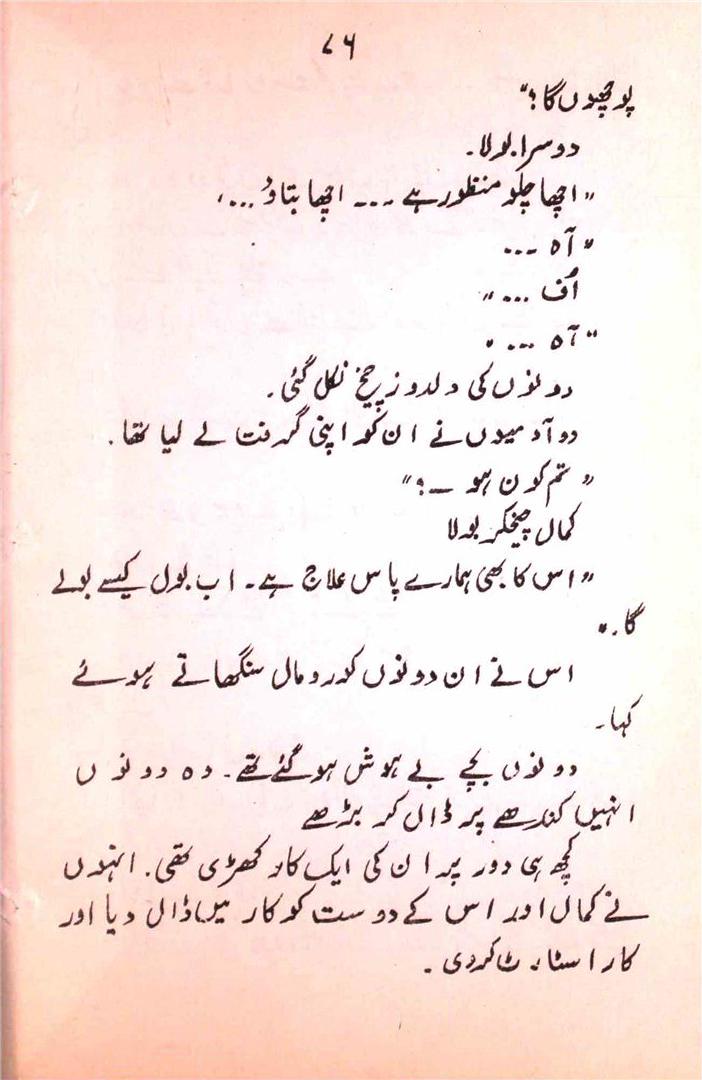 ۷۶
پوچھوں گا؟"
دوسرا بولا۔
"اچھا چلو منظور ہے ۔۔۔ اچھا بتاؤ ۔۔۔،
"آہ ۔۔۔
اُف ۔۔۔"
"آہ ۔۔۔"
دونوں کی دلدوز چیخ نکل گئی۔
دو آدمیوں نے ان کو اپنی گرفت لے لیا تھا۔
"تم کون ہو ۔؟"
کمال چیخکر بولا
"اس کا بھی ہمارے پاس علاج ہے۔ اب بول کیسے بولے
گا۔"
اس نے ان دونوں کو رومال سنگھاتے ہوئے
کہا۔
دونوں بچے بے ہوش ہو گئے تھے۔ وہ دونوں
انہیں کندھے پر ڈال کر بڑھے
کچھ ہی دور پر ان کی ایک کار کھڑی تھی۔ انہوں
نے کمال اور اس کے دوست کو کار میں ڈال دیا اور
کار اسٹارٹ کر دی۔